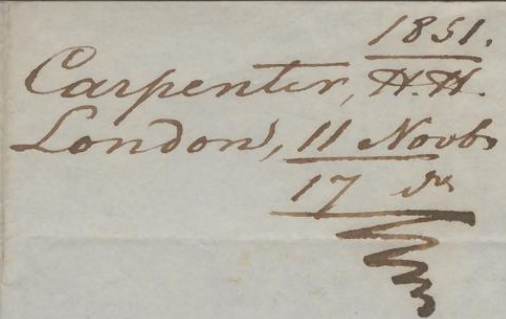 1851.
Carpenter, H.H.
London, 11 Novb
17 Do